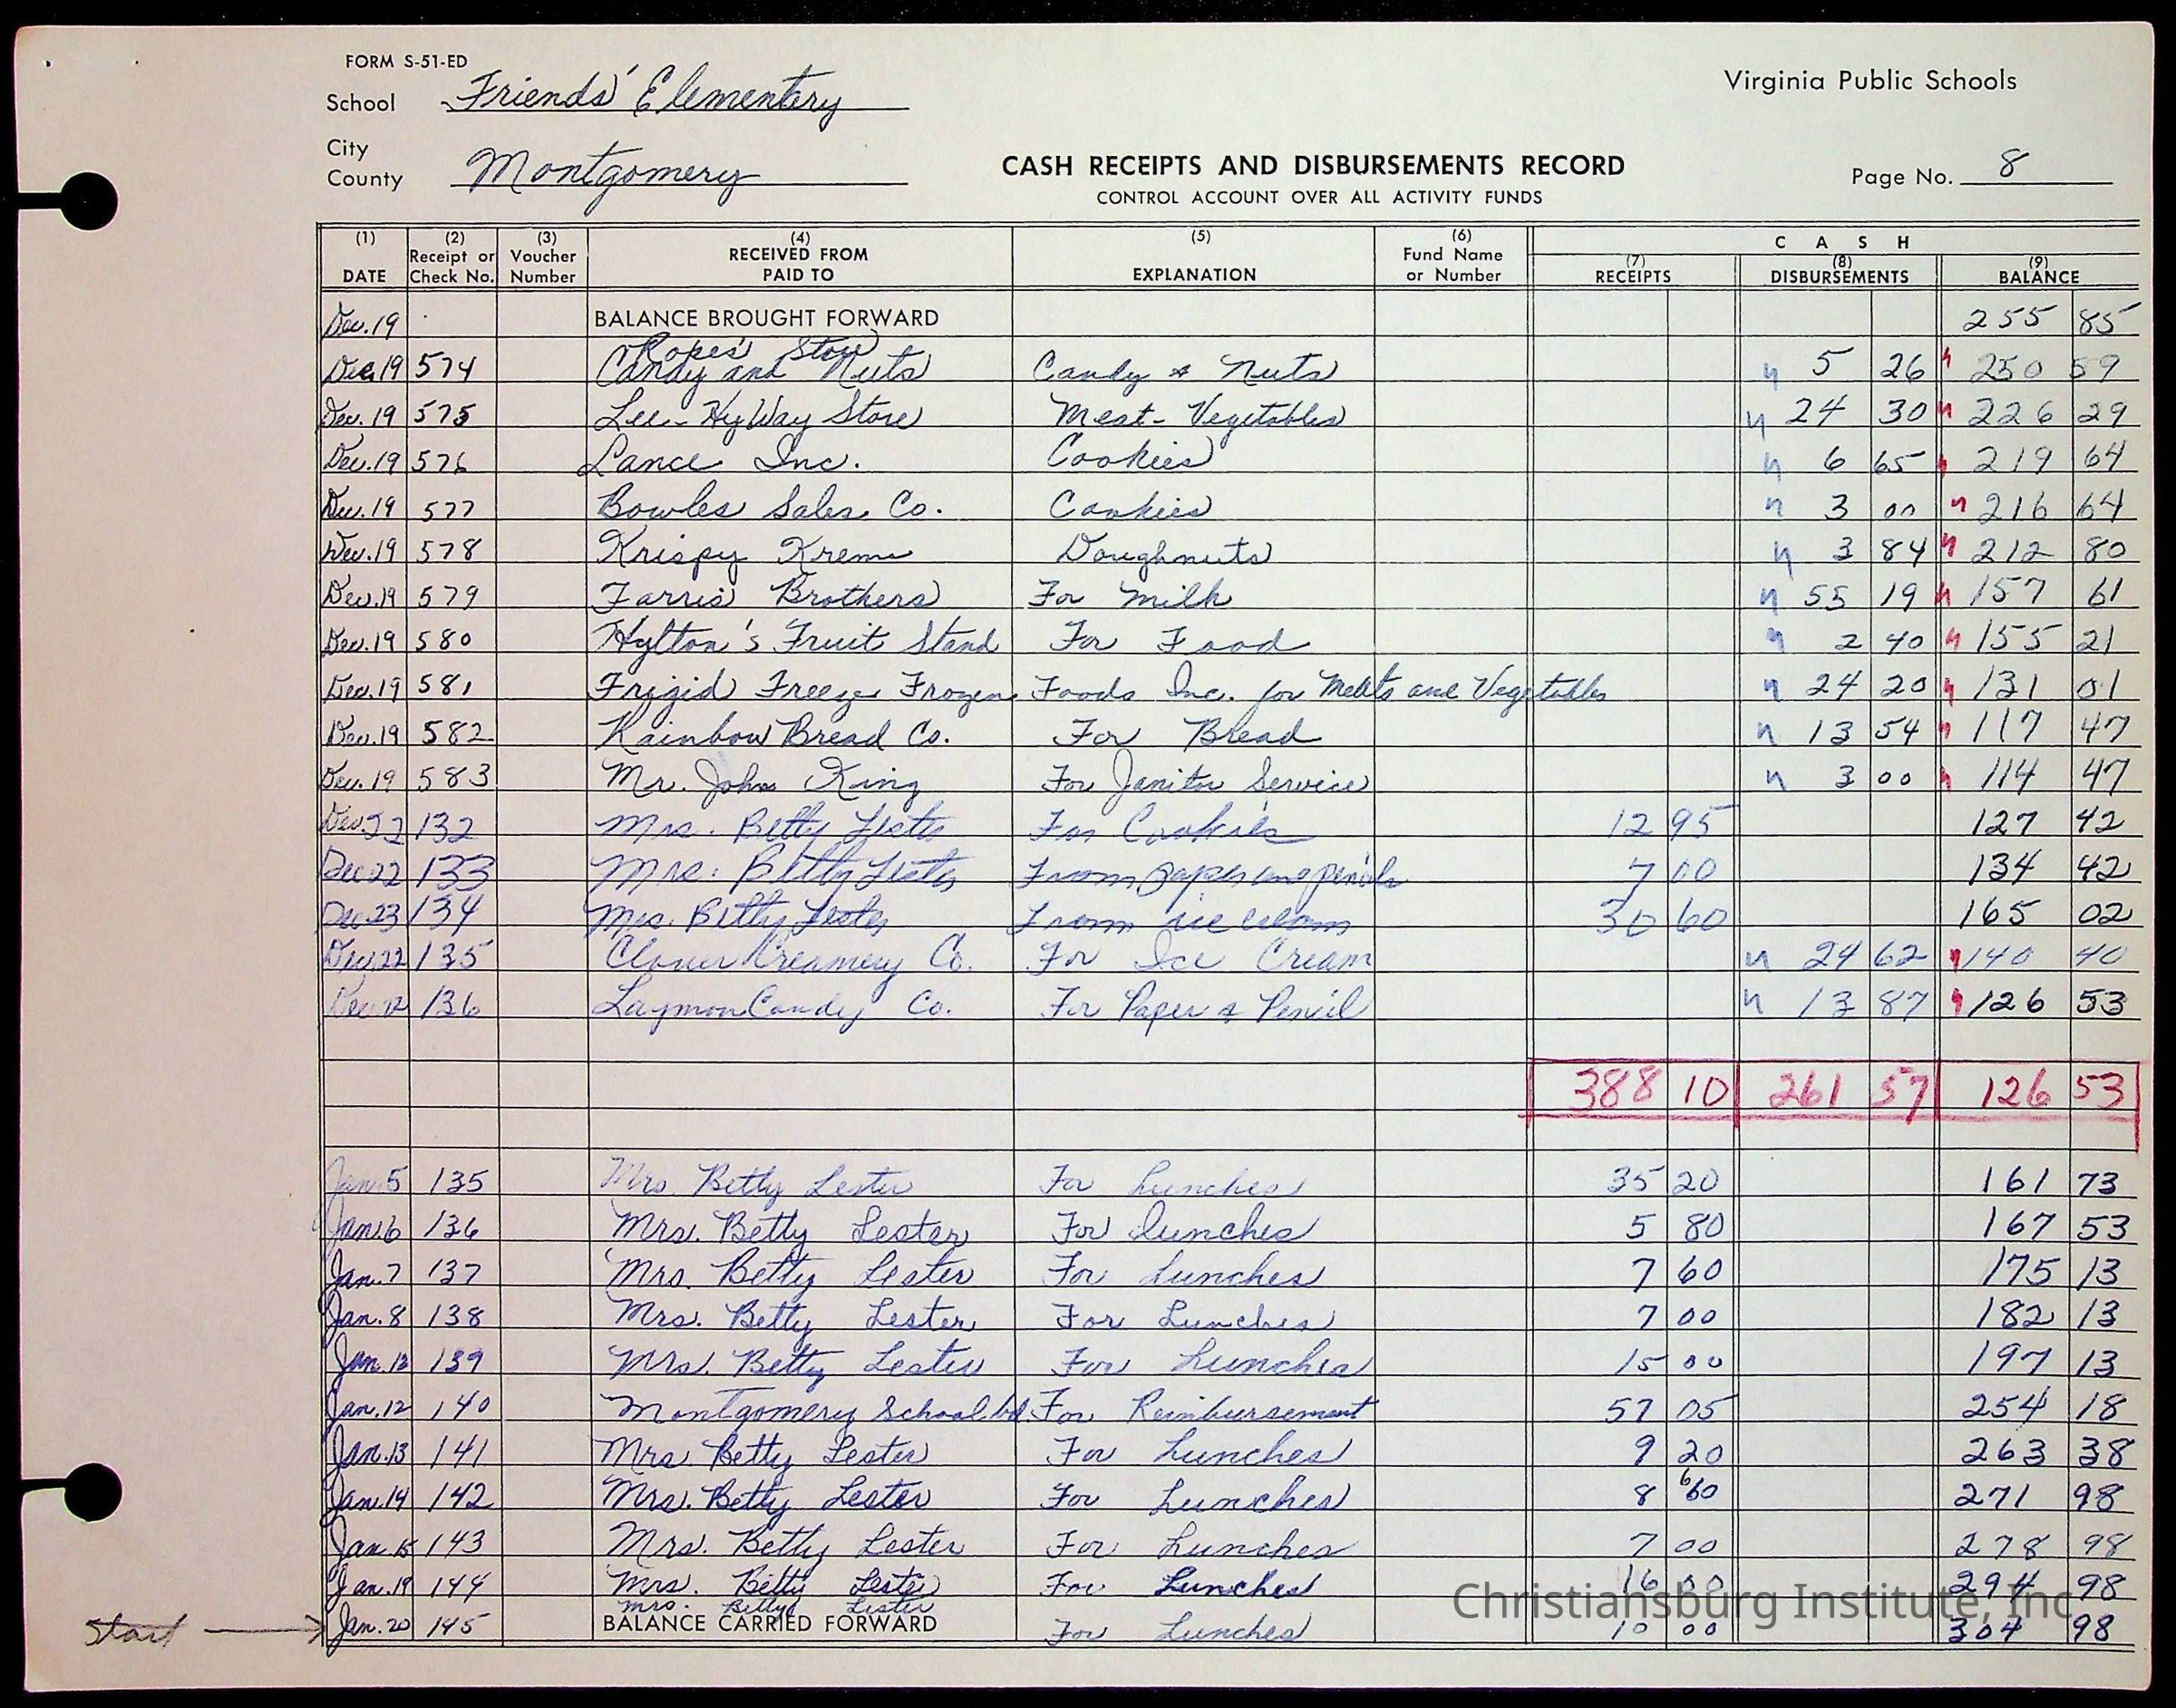 FORM S-51-ED
School Friends' Elementary
Virginia Public Schools
City
County Montgomery
CASH RECEIPTS AND DISBURSEMENTS RECORD
Page No. 8
CONTROL ACCOUNT OVER ALL ACTIVITY FUNDS
(1) DATE (2) Receipt or Check No. (3) Voucher Number (4) RECEIVED FROM PAID TO (5) EXPLANATION (6) Fund Name or Number CASH (7) RECEIPTS (8) DISBURSEMENTS (9) BALANCE
Dec. 19 BALANCE BROUGHT FORWARD 255 85
Dec 19 574 Ropes' Store Candy and Nuts Candy & Nuts 5 26 250 59
Dec. 19 575 Lee-HyWay Store Meat-Vegetables 24 30 226 29
Dec. 19 576 Lance Inc. Cookies 6 65 219 64
Dec. 19 577 Bowles Sales Co. Cookies 3 00 216 64
Dec. 19 578 Krispy Kreme Doughnuts 3 84 212 80
Dec. 19 579 Farris Brothers For Milk 55 19 157 61
Dec. 19 580 Hylton's Fruit Stand For Food 2 40 155 21
Dec. 19 581 Frigid Freeze Frozen Foods Inc. for Meats and Vegetables 24 20 131 01
Dec. 19 582 Rainbow Bread Co. For Bread 13 54 117 47
Dec. 19 583 Mr. John King For Janitor Service 3 00 114 47
Dec. 22 132 Mrs. Betty Lester For Cookies 12 95 127 42
Dec 22 133 Mrs. Betty Lester From paper and pencils 7 00 134 42
Dec. 23 134 Mrs. Betty Lester From ice cream 30 60 165 02
Dec 22 135 Clover Creamery Co. For Ice Cream 24 62 140 40
Dec 22 136 Laymon Candy Co. For Paper & Pencil 13 87 126 53
388 10 261 57 126 53
Jan. 5 135 Mrs. Betty Lester For Lunches 35 20 161 73
Jan. 6 136 Mrs. Betty Lester For lunches 5 80 167 53
Jan. 7 137 Mrs. Betty Lester For Lunches 7 60 175 13
Jan. 8 138 Mrs. Betty Lester For Lunches 7 00 182 13
Jan. 12 139 Mrs. Betty Lester For Lunches 15 00 197 13
Jan. 12 140 Montgomery School bd. For Reimbursement 57 05 254 18
Jan. 13 141 Mrs. Betty Lester For Lunches 9 20 263 38
Jan. 14 142 Mrs. Betty Lester For Lunches 8 60 271 98
Jan. 15 143 Mrs. Betty Lester For Lunches 7 00 278 98
Jan. 19 144 Mrs. Betty Lester For Lunches 16 00 294 98
Mrs. Betty Lester
Start Jan. 20 145 BALANCE CARRIED FORWARD For Lunches 10 00 304 98
Christiansburg Institute, Inc